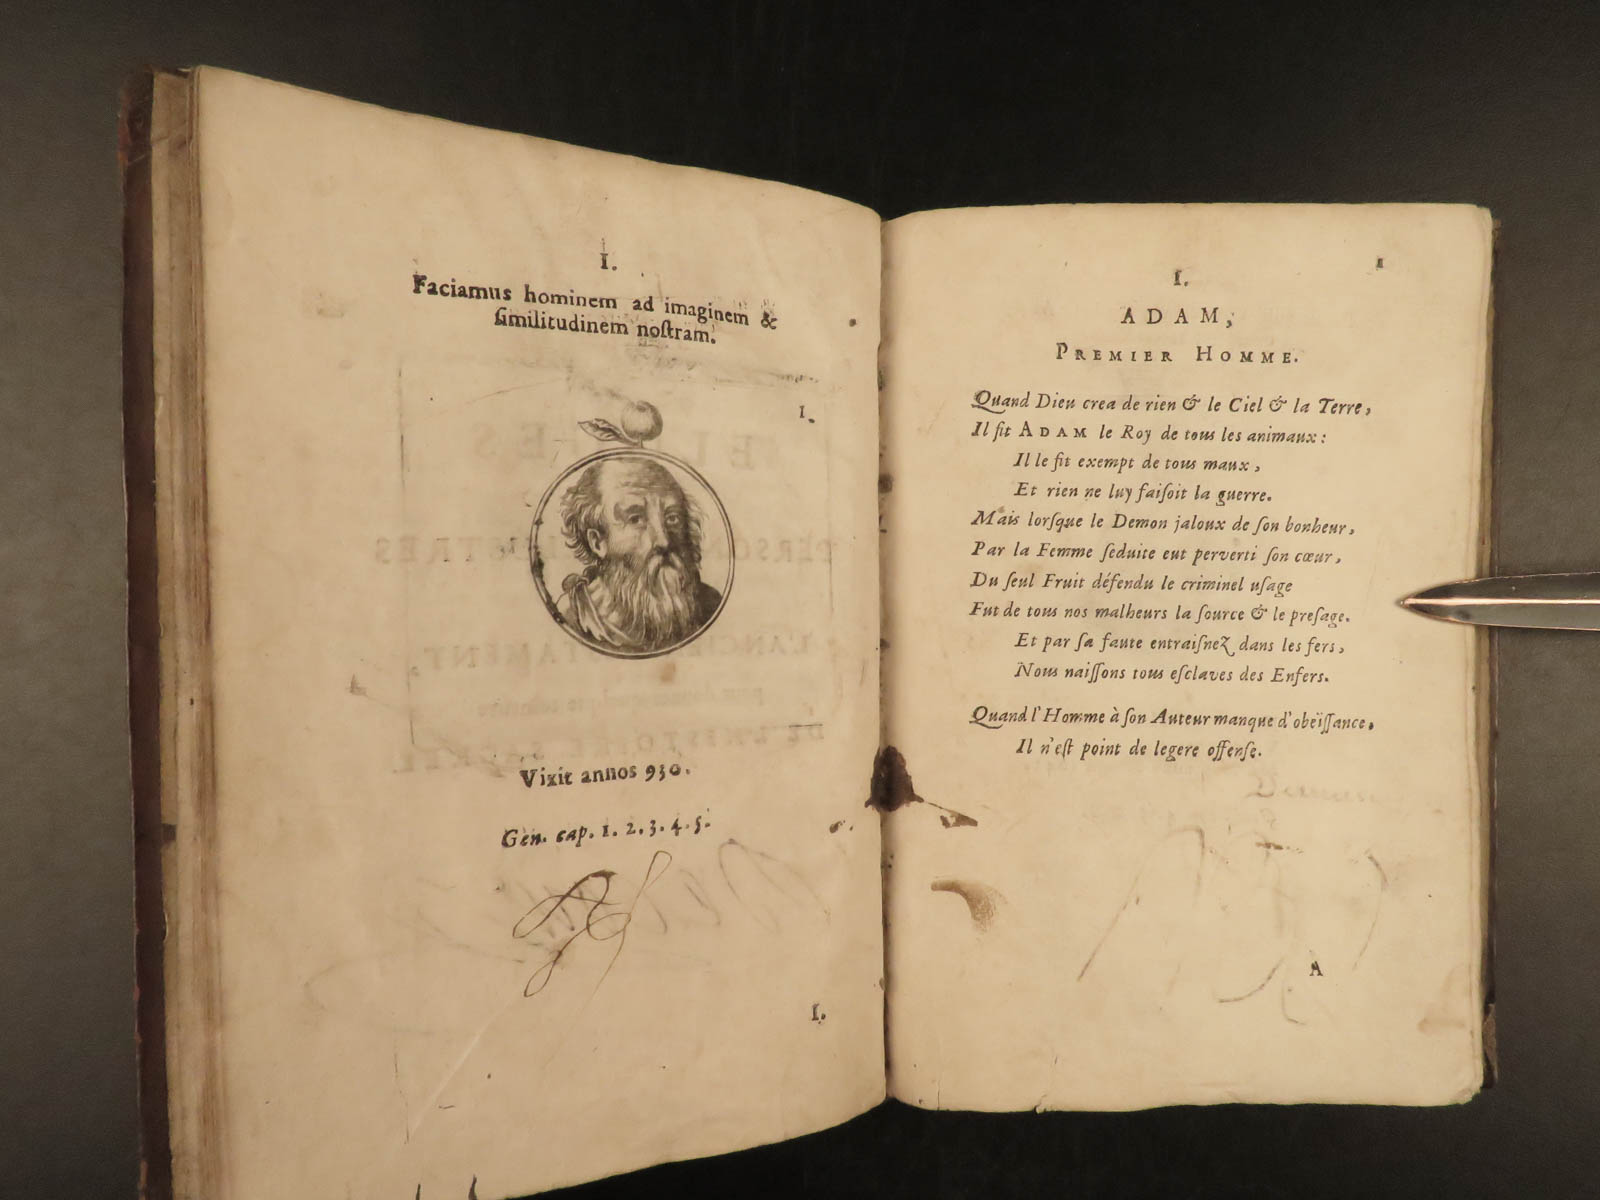 I.
Faciamus hominem ad imaginem &
ſimilitudinem noſtram.
I.
Vixit annos 930.
Gen. cap. 1. 2. 3. 4. 5.
I.
1
I.
ADAM,
PREMIER HOMME.
Quand Dieu crea de rien & le Ciel & la Terre,
Il fit ADAM le Roy de tous les animaux:
Il le fit exempt de tous maux,
Et rien ne luy faiſoit la guerre.
Mais lorſque le Demon jaloux de ſon bonheur,
Par la Femme ſeduite eut perverti ſon cœur,
Du ſeul Fruit défendu le criminel uſage
Fut de tous nos malheurs la ſource & le preſage.
Et par ſa faute entraiſnez dans les fers,
Nous naiſſons tous eſclaves des Enfers.
Quand l'Homme à ſon Auteur manque d'obeïſſance,
Il n'eſt point de legere offenſe.
A